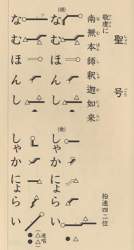 聖号
拍速四二位
敬虔に
南無本師釈迦如来
なむほんし
なむほんし
しゃかにょらい
しゃかにょらい